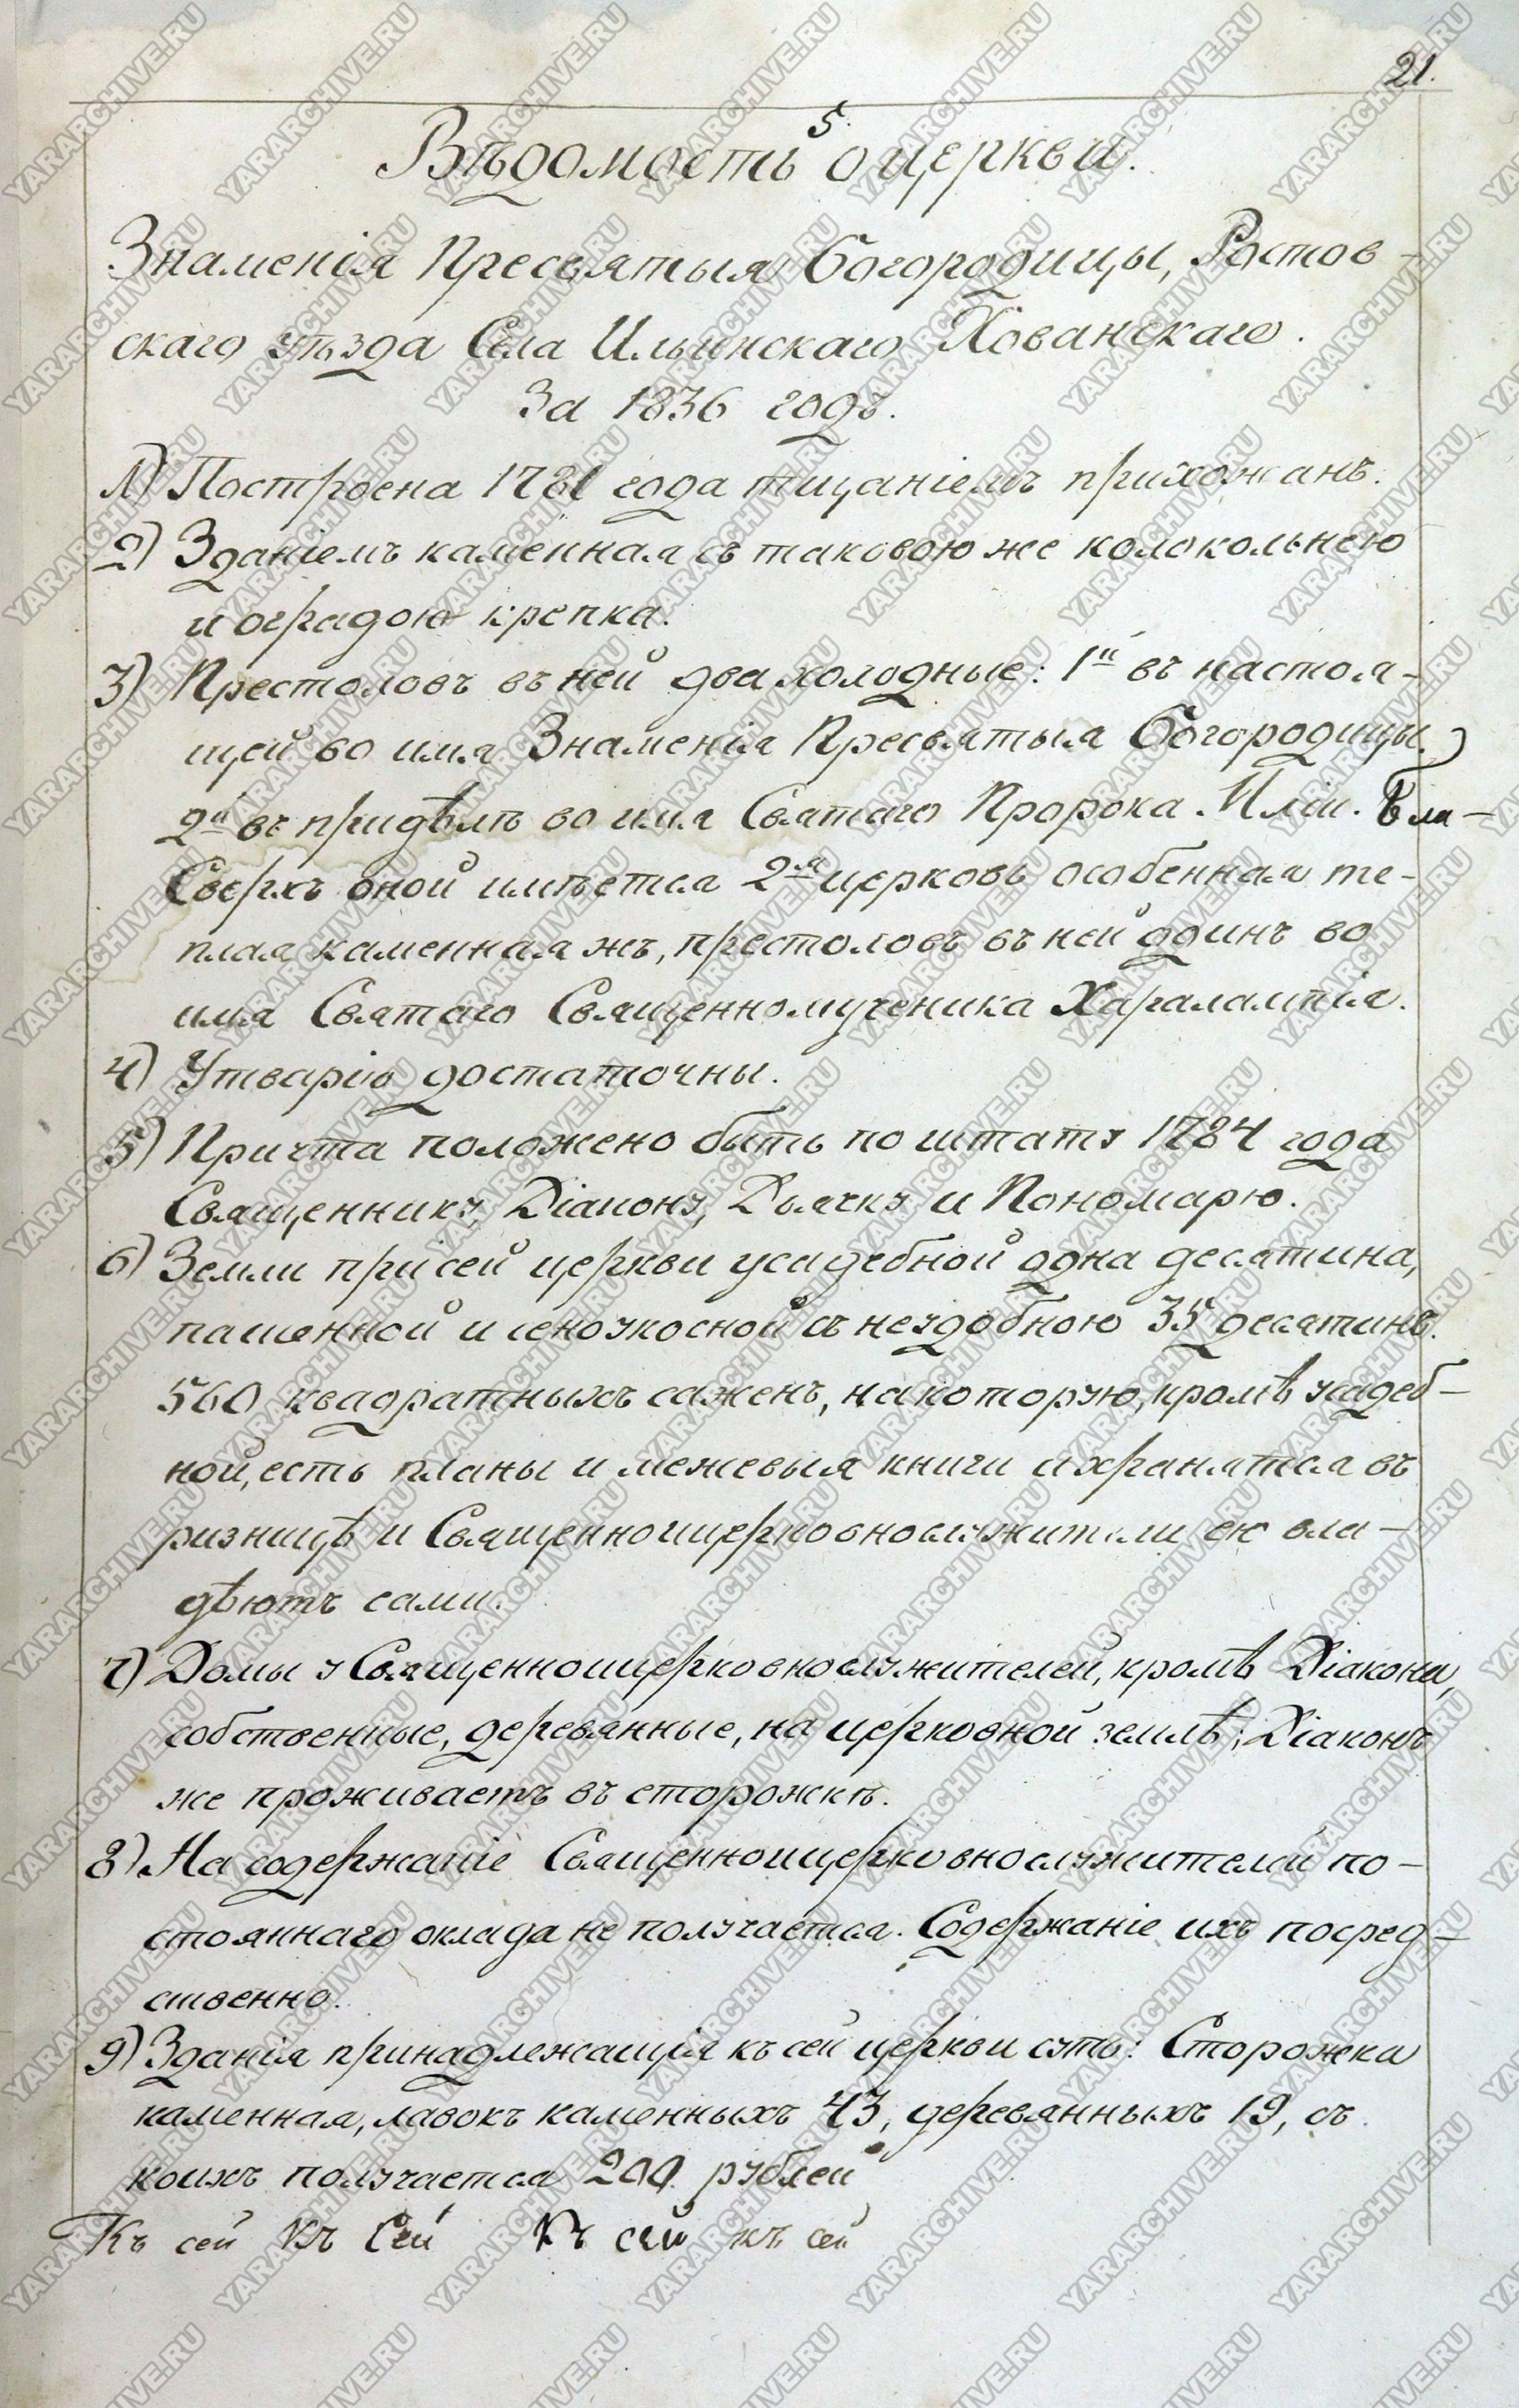 21.
5.
Вѣдомость о церкви.
Знаменія Пресвятыя Богородицы, Ростов-
скаго уѣзда Села Ильинскаго Хованскаго.
За 1836 годъ.
1) Построена 1781 года тщаніемъ прихожанъ.
2) Зданіемъ каменная съ таковою же колокольнею
и оградою крепка.
3) Престоловъ въ ней два холодные: 1й въ настоя-
щей во имя Знаменія Пресвятыя Богородицы,
2й въ придѣлѣ во имя Святаго Пророка Иліи.
Сверхъ оной имѣется 2я церковь особенная те-
плая каменная жъ, престоловъ въ ней одинъ во
имя Святаго Священномученика Харалампія.
4) Утварію достаточны.
5) Причта положено быть по штату 1784 года
Священнику, Діакону, Дьячку и Пономарю.
6) Земли при сей церкви усадебной одна десятина,
пашенной и сенокосной съ неудобною 35 десятинъ.
560 квадратныхъ саженъ, на которую, кромѣ усадеб-
ной, есть планы и межевыя книги и хранятся въ
ризницѣ и Священноицерковнослужители ею вла-
дѣютъ сами.
7) Домы у Священноицерковнослужителей, кромѣ Діакона,
собственные, деревянные, на церковной землѣ; Діаконъ
же проживаетъ въ сторожкѣ.
8) На содержаніе Священноицерковнослужителей по-
стояннаго оклада не получается. Содержаніе ихъ посред-
ственно.
9) Зданія принадлежащія къ сей церкви суть: Сторожка
каменная, лавокъ каменныхъ 43, деревянныхъ 19, съ
коихъ получается 200 рублей
Къ сей Къ Сей Къ сей къ сей
YARARCHIVE.RU